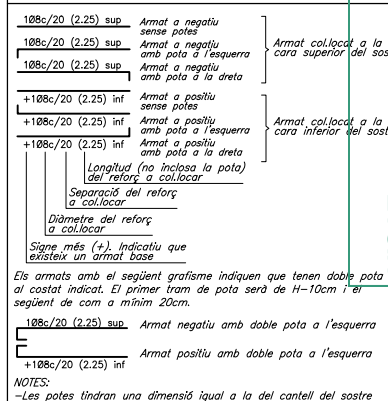 1Ø8c/20 (2.25) sup Armat a negatiu
sense potes
1Ø8c/20 (2.25) sup Armat a negatiu
amb pota a l'esquerra
1Ø8c/20 (2.25) sup Armat a negatiu
amb pota a la dreta
Armat col.locat a la
cara superior del sos
+1Ø8c/20 (2.25) inf Armat a positiu
sense potes
+1Ø8c/20 (2.25) inf Armat a positiu
amb pota a l'esquerra
+1Ø8c/20 (2.25) inf Armat a positiu
amb pota a la dreta
Armat col.locat a la
cara inferior del sost
Longitud (no inclosa la pota)
del reforç a col.locar
Separació del reforç
a col.locar
Diàmetre del reforç
a col.locar
Signe més (+). Indicatiu que
existeix un armat base
Els armats amb el següent grafisme indiquen que tenen doble pota
al costat indicat. El primer tram de pota serà de H-10cm i el
següent de com a mínim 20cm.
1Ø8c/20 (2.25) sup Armat negatiu amb doble pota a l'esquerra
Armat positiu amb doble pota a l'esquerra
+1Ø8c/20 (2.25) inf
NOTES:
-Les potes tindran una dimensió igual a la del cantell del sostre